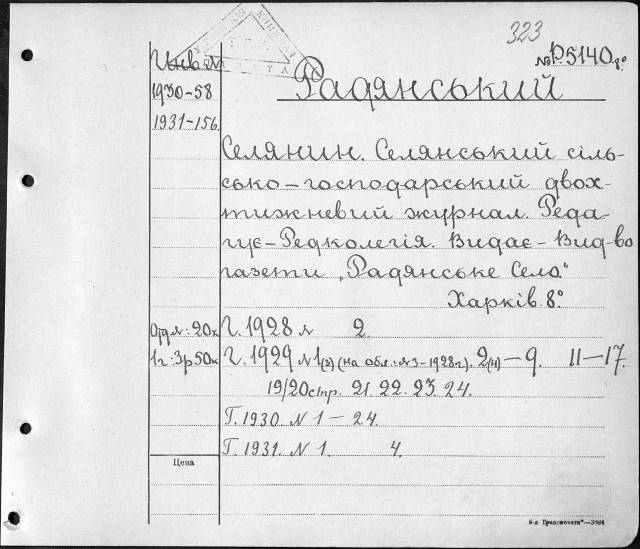 323
№ Р.5140 8°
Инв №
1930-58
1931-156.
Радянський
Селянин. Селянський сіль-
сько-господарський двох-
тижневий журнал. Реда-
гує-Редколегія. Видає-Вид-во
газети „Радянське Село."
Харків. 8°.
Отд №: 20к
Г. 1928 № 2.
1г: 3р50к
Г. 1929 №1(3) (на обл.: №3-1928г). 2(4)-9. 11-17.
19/20стр. 21. 22. 23. 24.
Г. 1930 № 1-24.
Г. 1931. № 1. 4.
Цена